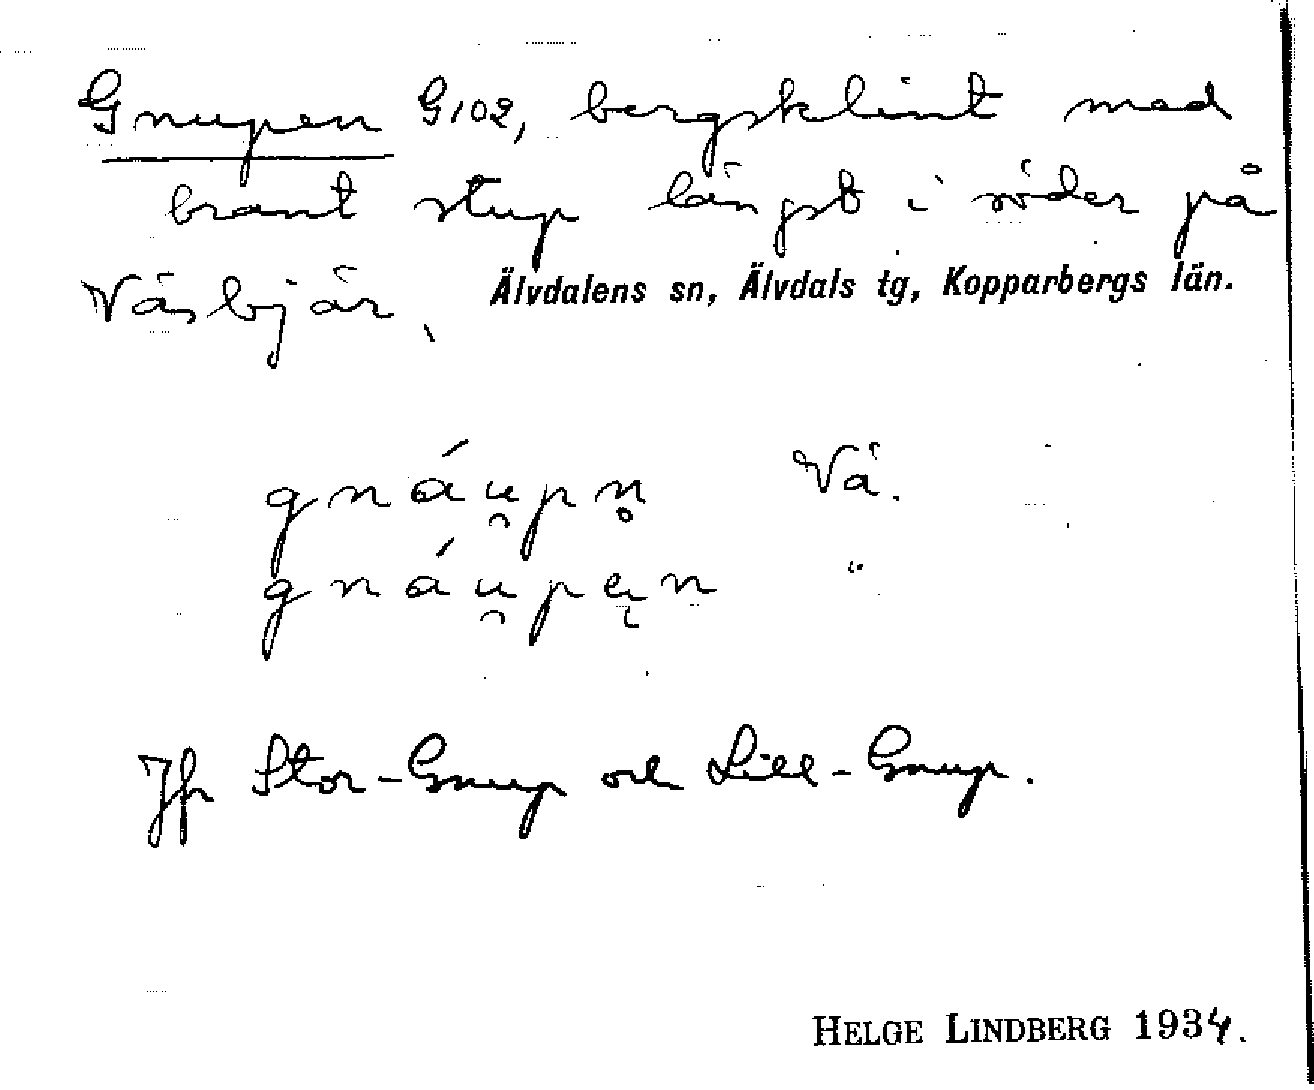 Gnupen G102, bergsklint med
brant stup längst i söder på
Väsbjär.
Älvdalens sn, Älvdals tg, Kopparbergs län.
gnáu̯pn̥ Vä.
gnáu̯pe̢n "
Jfr Stor-Gnup och Lill-Gnup.
HELGE LINDBERG 1934.